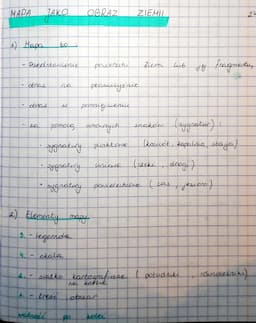 MAPA JAKO OBRAZ ZIEMII
1) Mapa to
- Przedstawienie powierzchni Ziemi lub jej fragmentu,
- obraz na płaszczyźnie
- obraz w pomniejszeniu
- za pomocą umownych znaków (sygnatur) :
• sygnatury punktowe (kościół, kaplica, stacja)
• sygnatury liniowe (rzeka, drogi)
• sygnatury powierzchniowe (las, jezioro)
2) Elementy mapy
- legenda
- skala
- siatka kartograficzna (południki, równoleżniki)
- treść